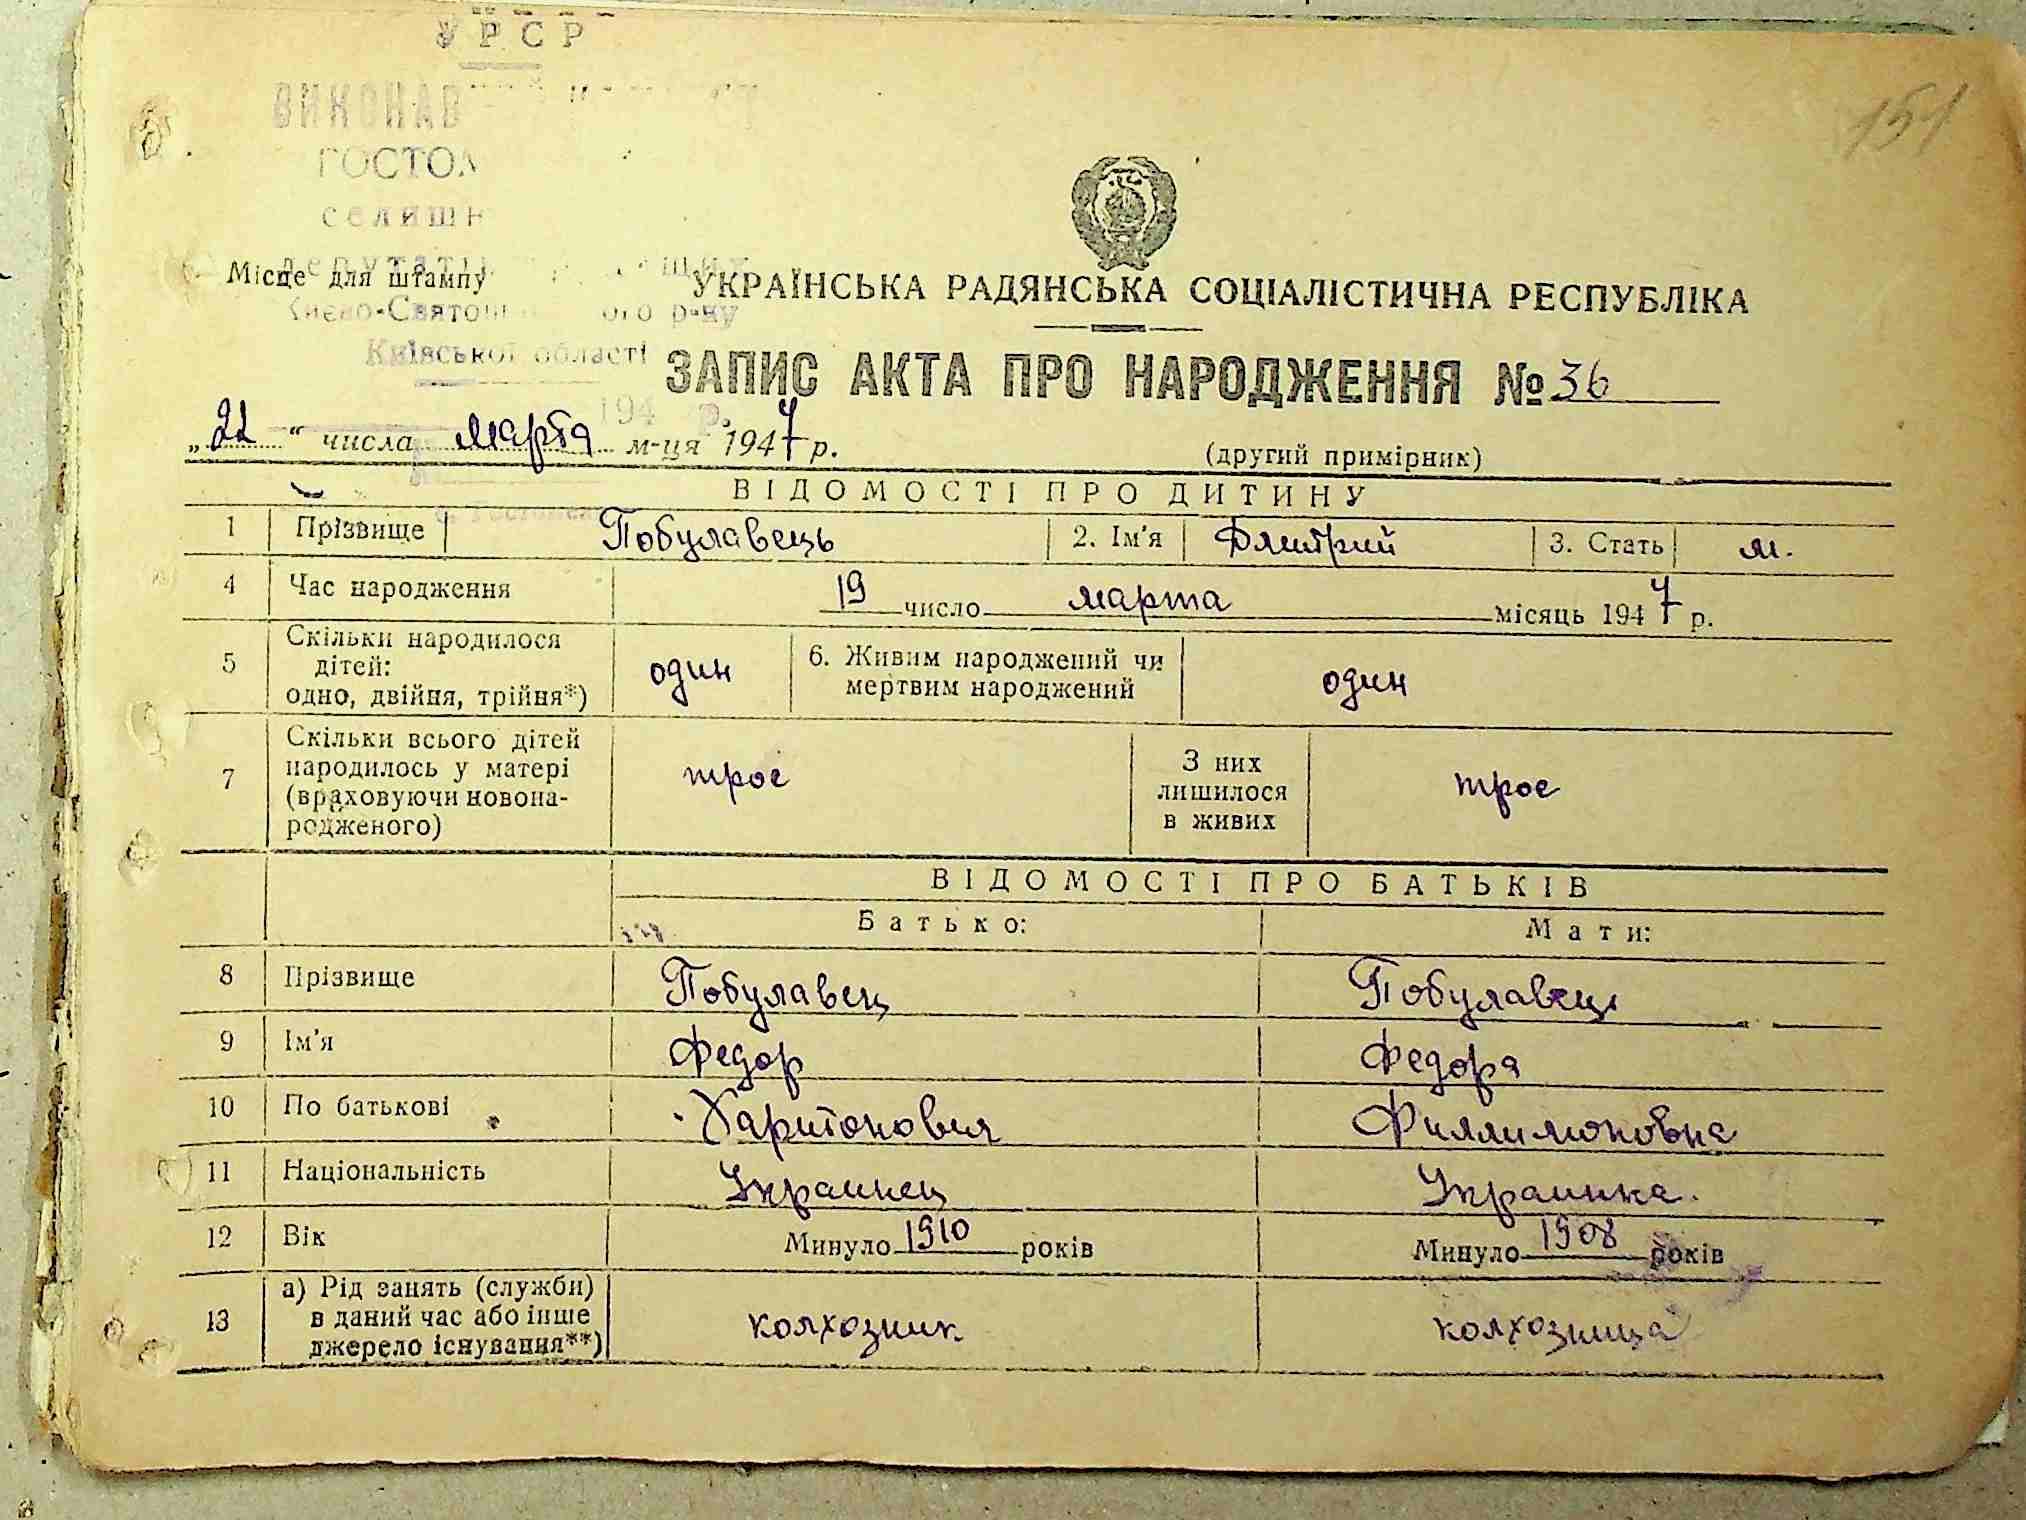 УРСР
151
Місце для штампу
УКРАЇНСЬКА РАДЯНСЬКА СОЦІАЛІСТИЧНА РЕСПУБЛІКА
Київської області
ЗАПИС АКТА ПРО НАРОДЖЕННЯ № 36
„22“ числа марта м-ця 1947 р.
(другий примірник)
ВІДОМОСТІ ПРО ДИТИНУ
1 Прізвище Побулавець 2. Ім'я Дмитрий 3. Стать м.
4 Час народження 19 число марта місяць 1947 р.
5 Скільки народилося
дітей:
одно, двійня, трійня*) один
6. Живим народжений чи
мертвим народжений один
7 Скільки всього дітей
народилось у матері
(враховуючи новона-
родженого) трое
З них
лишилося
в живих трое
ВІДОМОСТІ ПРО БАТЬКІВ
Батько: Мати:
8 Прізвище Побулавец Побулавец
9 Ім'я Федор Федора
10 По батькові Харитонович Филлимоновна
11 Національність Украинец Украинка.
12 Вік Минуло 1910 років Минуло 1908 років
13 а) Рід занять (служби)
в даний час або інше
джерело існування**) колхозник колхозница